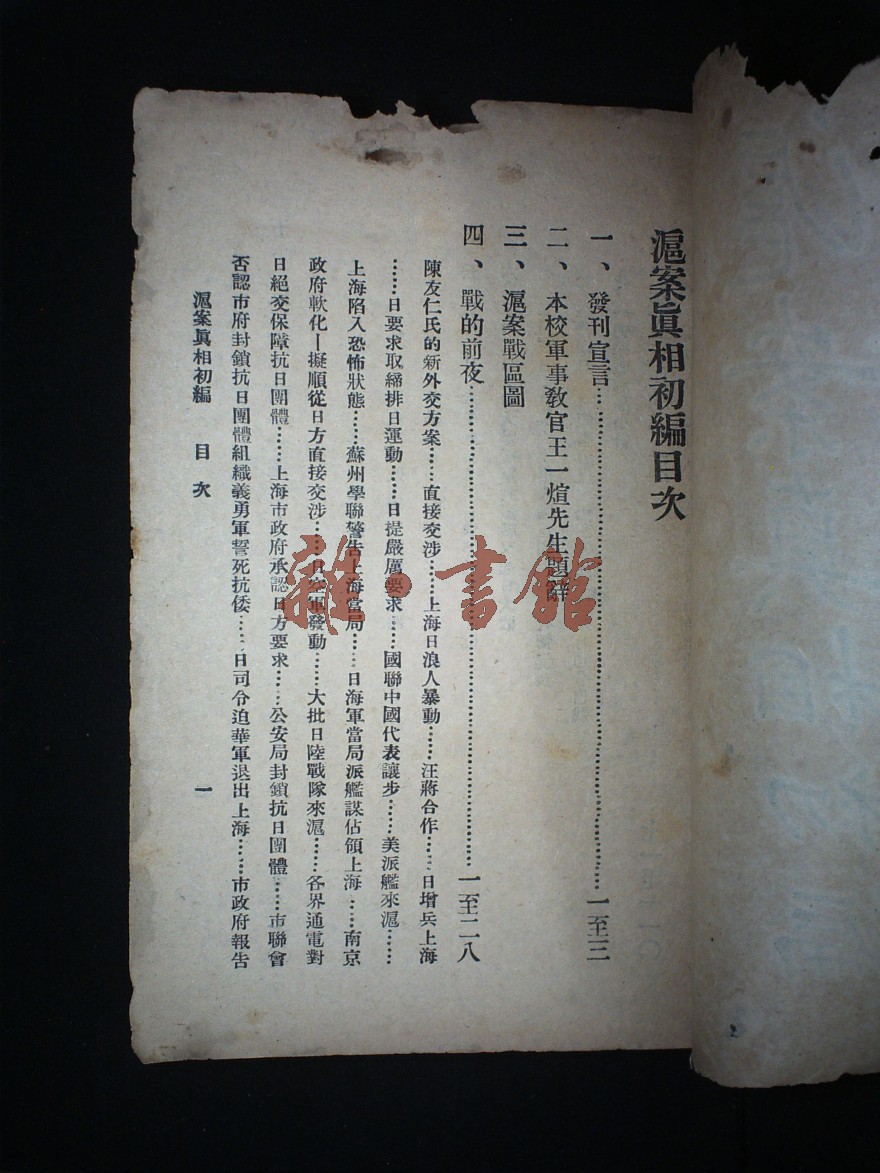 滬案眞相初編目次
一、發刊宣言……………………一至三
二、本校軍事敎官王一煊先生題辭
三、滬案戰區圖
四、戰的前夜……………………一至二八
陳友仁氏的新外交方案……直接交涉……上海日浪人暴動……汪蔣合作……日增兵上海
……日要求取締排日運動……日提嚴厲要求……國聯中國代表讓步……美派艦來滬……
上海陷入恐怖狀態……蘇州學聯警告上海當局……日海軍當局派艦謀佔領上海……南京
政府軟化—擬順從日方直接交涉……日空軍發動……大批日陸戰隊來滬……各界通電對
日絕交保障抗日團體……上海市政府承認日方要求……公安局封鎖抗日團體……市聯會
否認市府封鎖抗日團體組織義勇軍誓死抗倭……日司令迫華軍退出上海……市政府報告
滬案眞相初編　目次　一
雜·書館